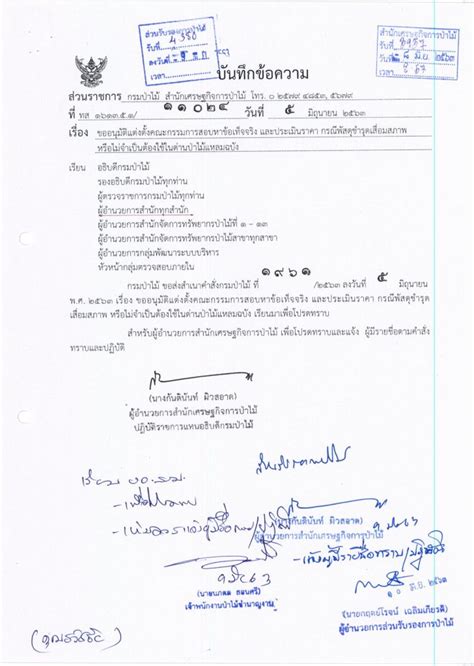 ส่วนรับรองการป่าไม้
วันที่
ลงวันที่
เวลา
สำนักเศรษฐกิจการป่าไม้
รับที่
วันที่ ๘ มิ.ย. ๒๕๖๓
เวลา
บันทึกข้อความ
ส่วนราชการ กรมป่าไม้ สำนักเศรษฐกิจการป่าไม้ โทร. ๐ ๒๕๗๙ ๔๘๕๓, ๕๖๗๙
ที่ ทส ๑๖๑๓.๕.๑/ ๑๑๐๒๔ วันที่ ๕ มิถุนายน ๒๕๖๓
เรื่อง ขออนุมัติแต่งตั้งคณะกรรมการสอบหาข้อเท็จจริง และประเมินราคา กรณีพัสดุชำรุดเสื่อมสภาพ
หรือไม่จำเป็นต้องใช้ในด่านป่าไม้แหลมฉบัง
เรียน อธิบดีกรมป่าไม้
รองอธิบดีกรมป่าไม้ทุกท่าน
ผู้ตรวจราชการกรมป่าไม้ทุกท่าน
ผู้อำนวยการสำนักทุกสำนัก
ผู้อำนวยการสำนักจัดการทรัพยากรป่าไม้ที่ ๑ - ๑๓
ผู้อำนวยการสำนักจัดการทรัพยากรป่าไม้สาขาทุกสาขา
ผู้อำนวยการกลุ่มพัฒนาระบบบริหาร
หัวหน้ากลุ่มตรวจสอบภายใน
กรมป่าไม้ ขอส่งสำเนาคำสั่งกรมป่าไม้ที่ ๑๙๖๑ /๒๕๖๓ ลงวันที่ ๕ มิถุนายน
พ.ศ. ๒๕๖๓ เรื่อง ขออนุมัติแต่งตั้งคณะกรรมการสอบหาข้อเท็จจริง และประเมินราคา กรณีพัสดุชำรุด
เสื่อมสภาพ หรือไม่จำเป็นต้องใช้ในด่านป่าไม้แหลมฉบัง เรียนมาเพื่อโปรดทราบ
สำหรับผู้อำนวยการสำนักเศรษฐกิจการป่าไม้ เพื่อโปรดทราบและแจ้ง ผู้มีรายชื่อตามคำสั่ง
ทราบและปฏิบัติ
(นางกันตินันท์ ผิวสอาด)
ผู้อำนวยการสำนักเศรษฐกิจการป่าไม้
ปฏิบัติราชการแทนอธิบดีกรมป่าไม้
(นางกันตินันท์ ผิวสอาด)
ผู้อำนวยการสำนักเศรษฐกิจการป่าไม้
เจ้าพนักงานป่าไม้ชำนาญงาน
๑๐ มิ.ย. ๒๕๖๓
(นายกฤตย์โรจน์ เฉลิมเกียรติ)
ผู้อำนวยการส่วนรับรองการป่าไม้